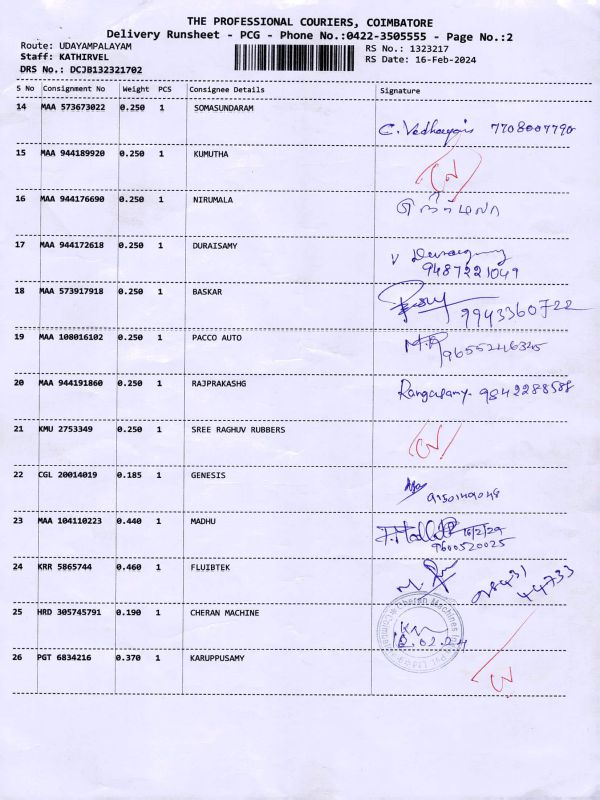 THE PROFESSIONAL COURIERS, COIMBATORE
Delivery Runsheet - PCG - Phone No.:0422-3505555 - Page No.:2
Route: UDAYAMPALAYAM
Staff: KATHIRVEL
DRS No.: DCJB132321702
RS No.: 1323217
RS Date: 16-Feb-2024
S No Consignment No Weight PCS Consignee Details Signature
14 MAA 573673022 0.250 1 SOMASUNDARAM
7708007790
15 MAA 944189920 0.250 1 KUMUTHA
16 MAA 944176690 0.250 1 NIRUMALA
17 MAA 944172618 0.250 1 DURAISAMY
9487221049
18 MAA 573917918 0.250 1 BASKAR
9943360722
19 MAA 108016102 0.250 1 PACCO AUTO
9655246325
20 MAA 944191860 0.250 1 RAJPRAKASHG
Rangasamy. 9842288588
21 KMU 2753349 0.250 1 SREE RAGHUV RUBBERS
22 CGL 20014019 0.185 1 GENESIS
23 MAA 104110223 0.440 1 MADHU
16/2/24
9600520025
24 KRR 5865744 0.460 1 FLUIBTEK
98431
44733
25 HRD 305745791 0.190 1 CHERAN MACHINE
26 PGT 6834216 0.370 1 KARUPPUSAMY